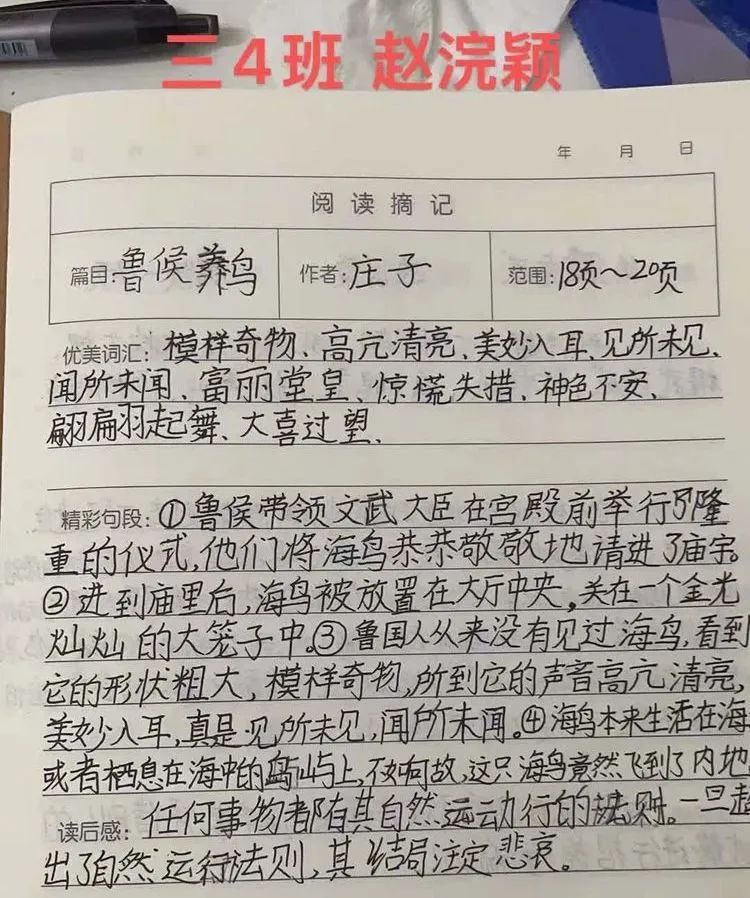 三4班 赵浣颖
年 月 日
阅读摘记
篇目:鲁候养鸟 作者:庄子 范围:18页~20页
优美词汇:模样奇物、高亢清亮、美妙入耳、见所未见、
闻所未闻、富丽堂皇、惊慌失措、神色不安、
翩翩起舞、大喜过望、
精彩句段:①鲁侯带领文武大臣在宫殿前举行了隆
重的仪式,他们将海鸟恭恭敬敬地请进了庙宇。
②进到庙里后,海鸟被放置在大厅中央,关在一个金光
灿灿的大笼子中。③鲁国人从来没有见过海鸟,看到
它的形状粗大,模样奇物,所到它的声音高亢清亮,
美妙入耳,真是见所未见,闻所未闻。④海鸟本来生活在海
或者栖息在海中的岛屿上,不知何故,这只海鸟竟然飞到了内地
读后感:任何事物都有其自然运动行的规则。一旦超
出了自然运行法则,其结局注定悲哀。